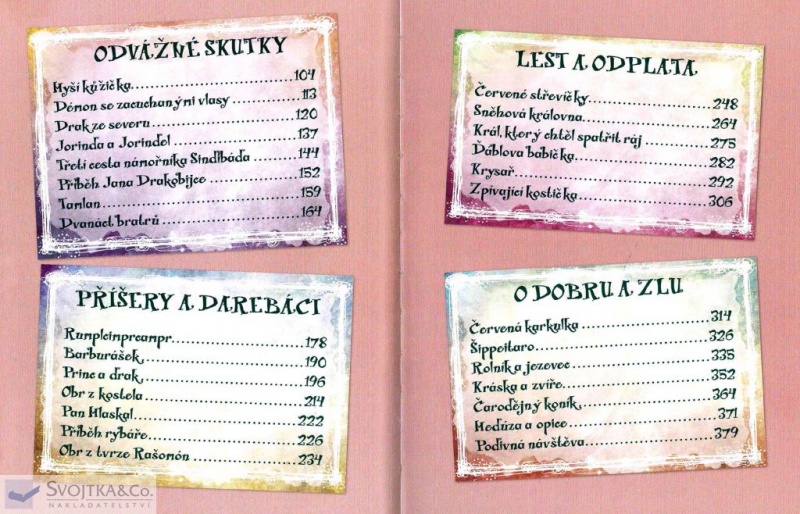 ODVÁŽNÉ SKUTKY
Myší kůžička 104
Démon se zacuchanými vlasy 113
Drak ze severu 120
Jorinda a Jorindel 137
Třetí cesta námořníka Sindibáda 144
Příběh Jana Drakobijce 152
Tamlan 159
Dvanáct bratrů 164
PŘÍŠERY A DAREBÁCI
Rumplcimprcampr 178
Barburášek 190
Princ a drak 196
Obr z kostela 214
Pan Hlaskal 222
Příběh rybáře 226
Obr z tvrze Rašomón 234
LEST A ODPLATA
Červené střevíčky 248
Sněhová královna 264
Král, který chtěl spatřit ráj 275
Ďáblova babička 282
Krysař 292
Zpívající kostička 306
O DOBRU A ZLU
Červená karkulka 314
Šippeitaro 326
Rolník a jezevec 335
Kráska a zvíře 352
Čarodějný koník 364
Medúza a opice 371
Podivná návštěva 379
SVOJTKA&Co.
NAKLADATELSTVÍ